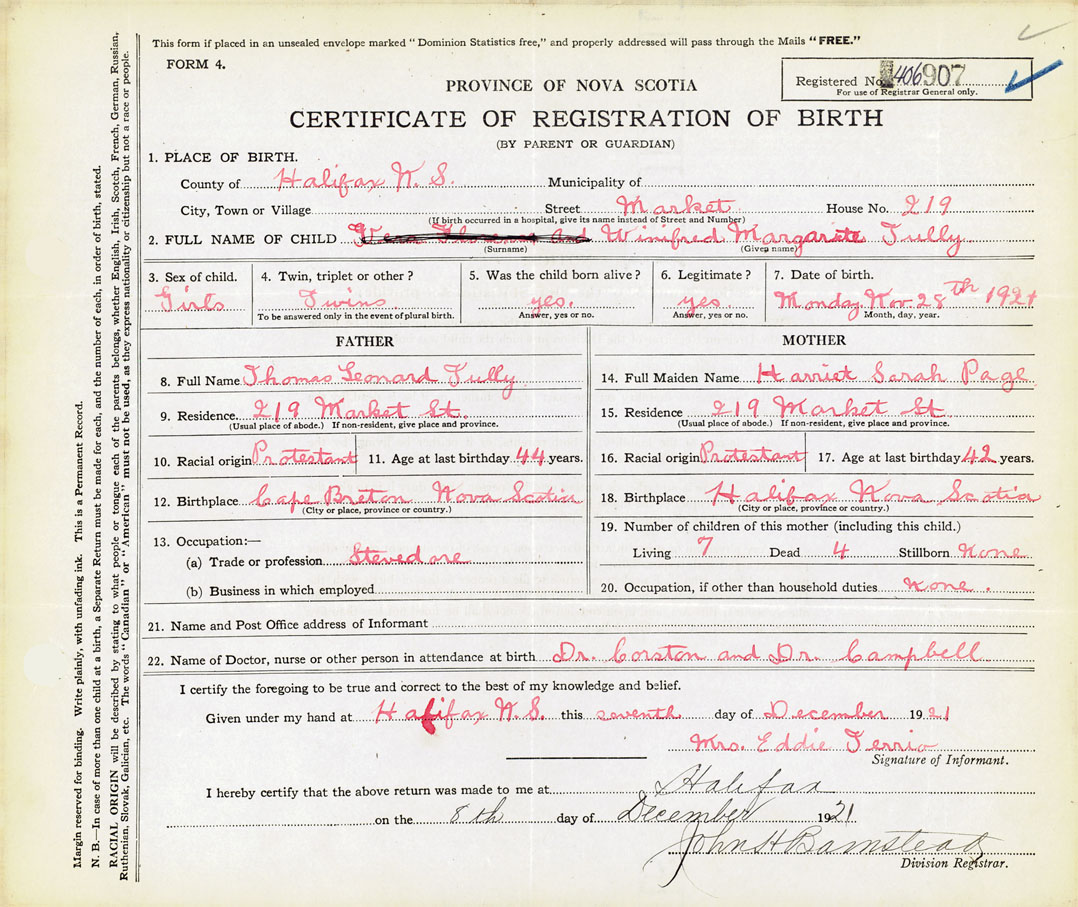 This form if placed in an unsealed envelope marked "Dominion Statistics free," and properly addressed will pass through the Mails "FREE."
FORM 4.
Registered No. 406907
For use of Registrar General only.
PROVINCE OF NOVA SCOTIA
CERTIFICATE OF REGISTRATION OF BIRTH
(BY PARENT OR GUARDIAN)
1. PLACE OF BIRTH.
County of Halifax N. S. Municipality of
City, Town or Village Street Market House No. 219
(If birth occurred in a hospital, give its name instead of Street and Number)
2. FULL NAME OF CHILD Winifred Margarete Tully.
(Surname) (Given name)
3. Sex of child. 4. Twin, triplet or other? 5. Was the child born alive? 6. Legitimate? 7. Date of birth.
Girls Twins yes. yes. Monday. Nov. 28th 1921
To be answered only in the event of plural birth. Answer, yes or no. Answer, yes or no. Month, day, year.
FATHER
8. Full Name Thomas Leonard Tully
9. Residence. 219 Market St.
(Usual place of abode.) If non-resident, give place and province.
10. Racial origin Protestant 11. Age at last birthday 44 years.
12. Birthplace Cape Breton Nova Scotia
(City or place, province or country.)
13. Occupation:—
(a) Trade or profession Stevedore
(b) Business in which employed
MOTHER
14. Full Maiden Name Harriet Sarah Page
15. Residence 219 Market St
(Usual place of abode.) If non-resident, give place and province.
16. Racial origin Protestant 17. Age at last birthday 42 years.
18. Birthplace Halifax Nova Scotia
(City or place, province or country.)
19. Number of children of this mother (including this child.)
Living 7 Dead 4 Stillborn None
20. Occupation, if other than household duties None.
21. Name and Post Office address of Informant
22. Name of Doctor, nurse or other person in attendance at birth Dr. Corston and Dr. Campbell
I certify the foregoing to be true and correct to the best of my knowledge and belief.
Given under my hand at Halifax N. S. this seventh day of December 1921
Mrs. Eddie Terrio
Signature of Informant.
I hereby certify that the above return was made to me at Halifax
on the 8th day of December 1921
John H Barnstead
Division Registrar.
Margin reserved for binding. Write plainly, with unfading ink. This is a Permanent Record.
N. B.—In case of more than one child at a birth, a Separate Return must be made for each, and the number of each, in order of birth, stated.
RACIAL ORIGIN will be described by stating to what people or tongue each of the parents belongs, whether English, Irish, Scotch, French, German, Russian,
Ruthenian, Slovak, Galician, etc. The words "Canadian" or "American" must not be used, as they express nationality or citizenship but not a race or people.